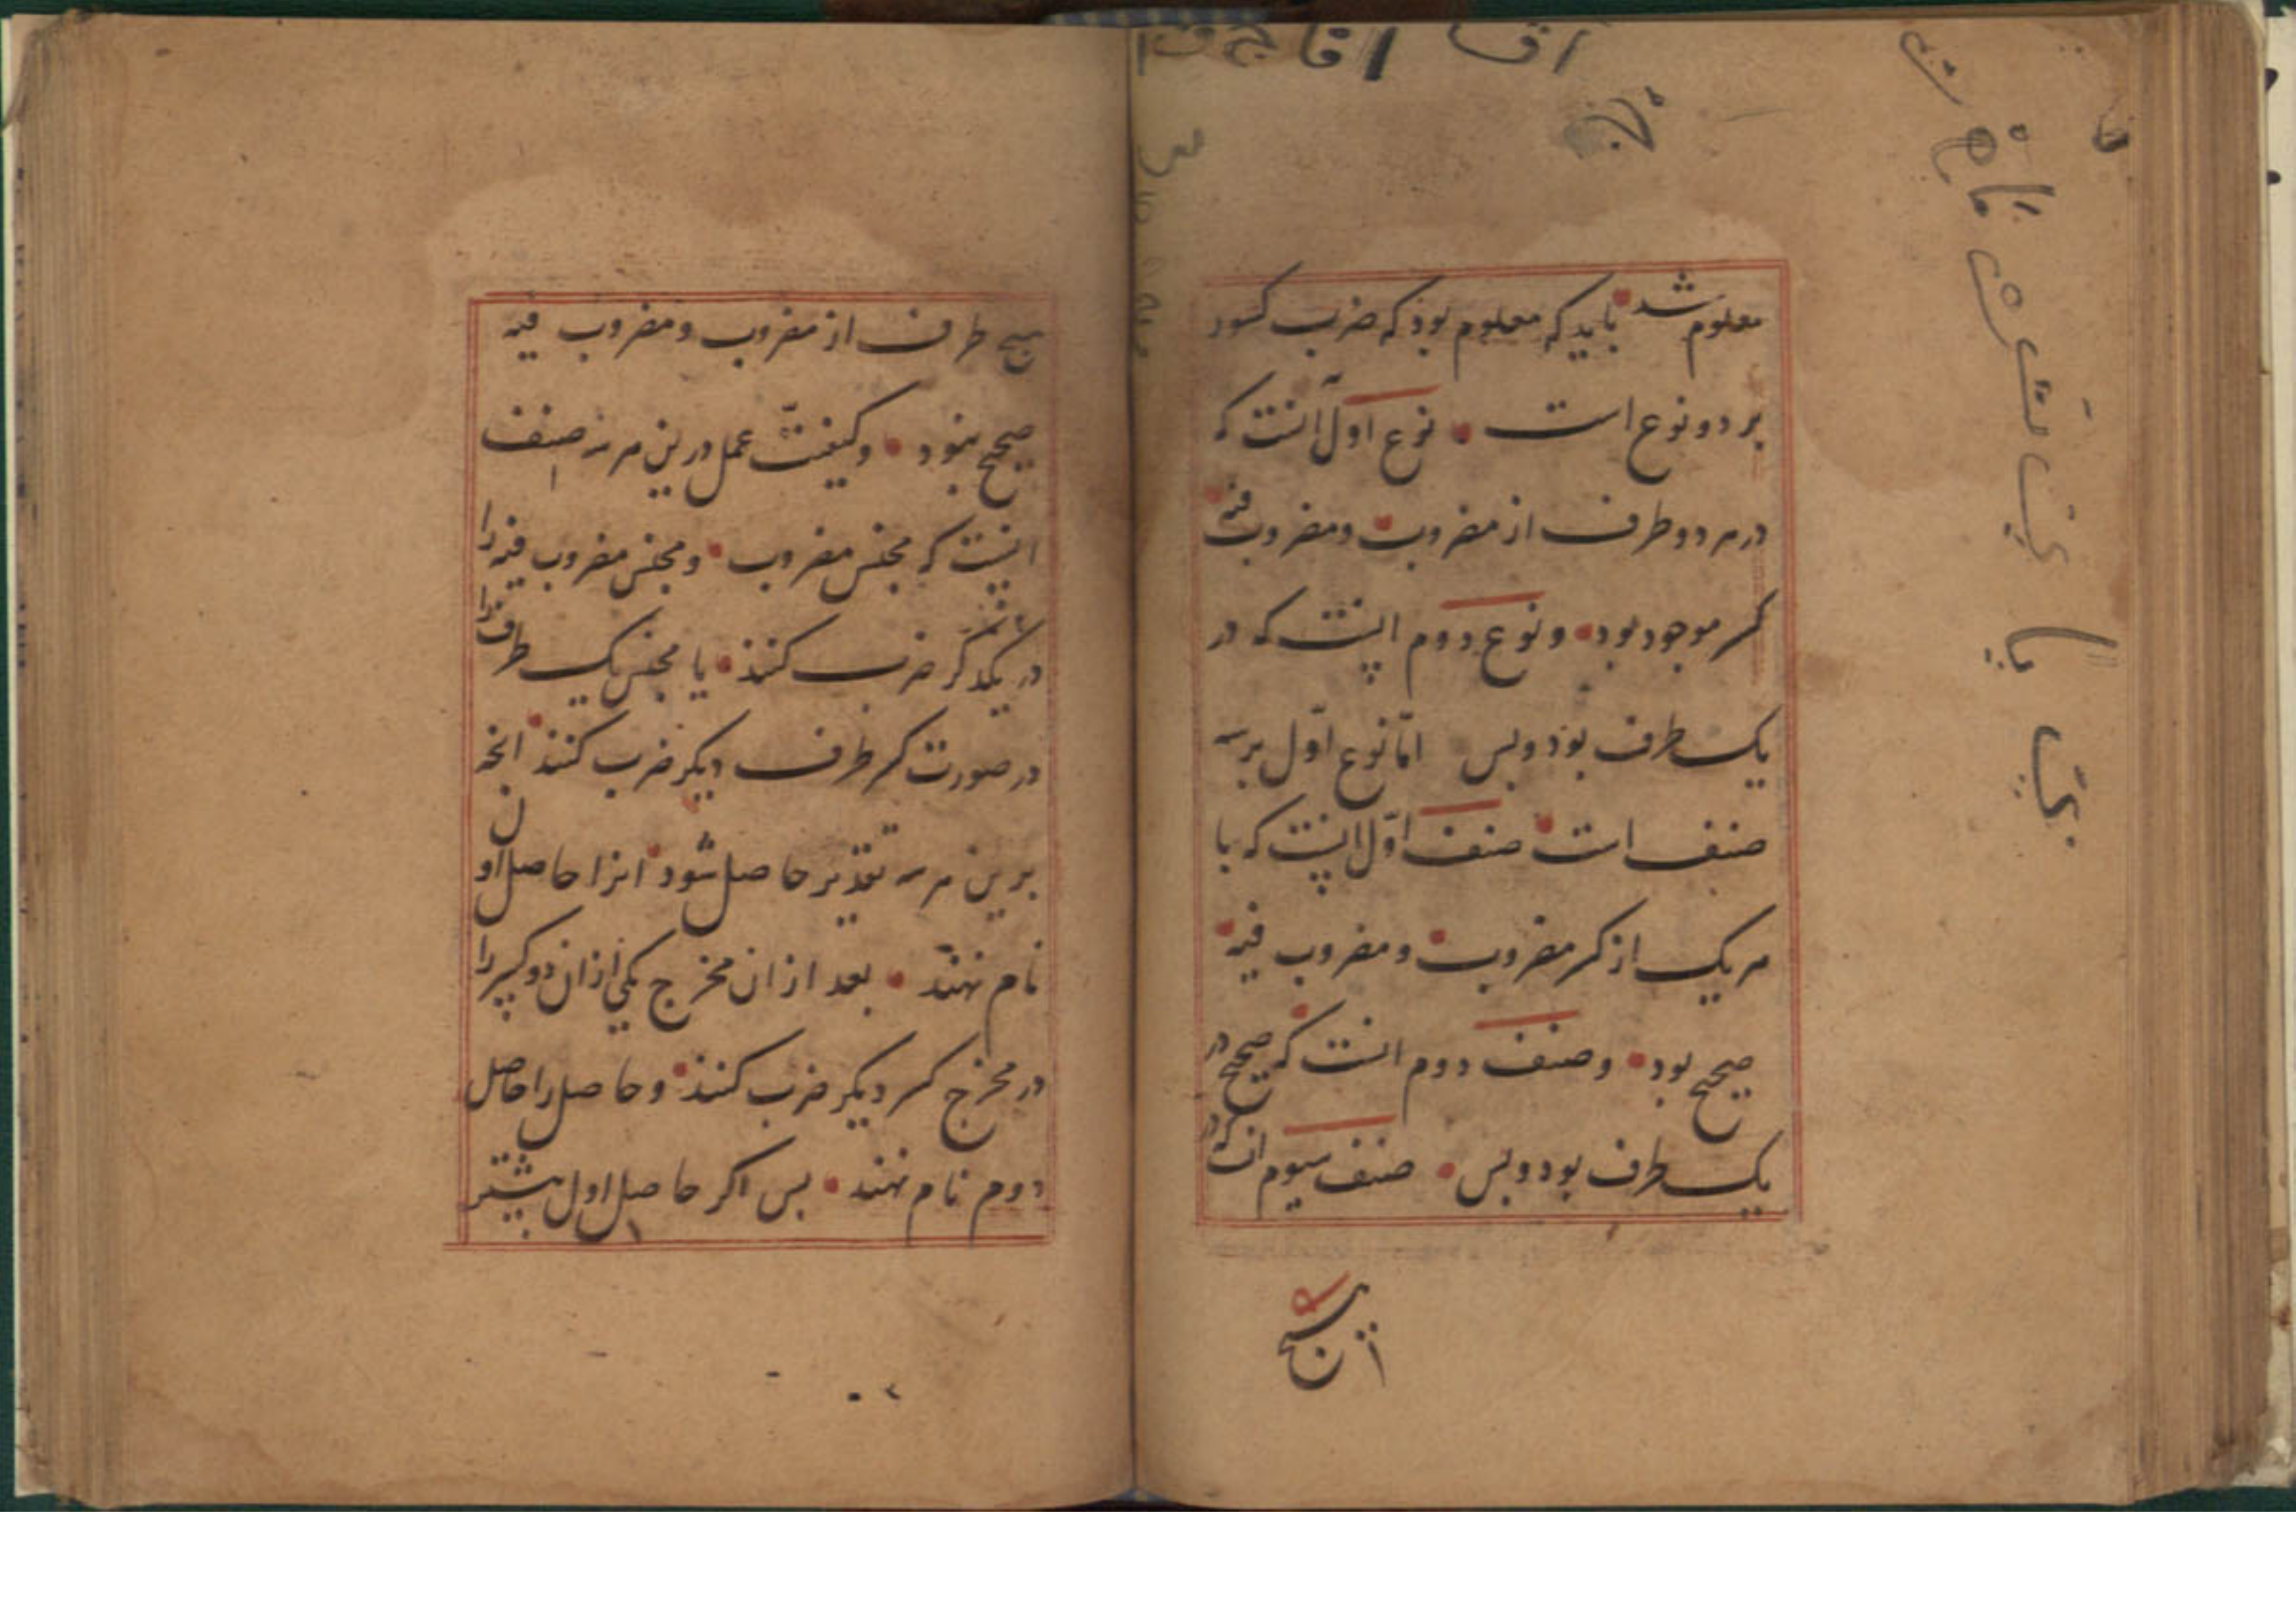 معلوم شد باید که معلوم بود که ضرب کسور
بر دو نوع است نوع اول آنست که
در هر دو طرف از مضروب و مضروب فیه
کسر موجود بود و نوع دوم اینست که در
یک طرف بود و بس اما نوع اول بر سه
صنف است صنف اول اینست که با
هر یک از کسر مضروب و مضروب فیه
صحیح بود و صنف دوم انست که صحیح در
یک طرف بود و بس صنف سیوم انکه در
هیچ طرف از مضروب و مضروب فیه
صحیح نبود و کیفیت عمل درین هر سه صنف
اینست که مجنس مضروب و مجنس مضروب فیه را
در یکدکر ضرب کنند یا مجنس یک طرف را
در صورت کسر طرف دیکر ضرب کنند انچه
برین هر سه تقدیر حاصل شود انرا حاصل اول
نام نهند بعد از ان مخرج یکی از ان دو کسر را
در مخرج کسر دیکر ضرب کنند و حاصل را حاصل
دوم نام نهند بس اکر حاصل اول بیشتر